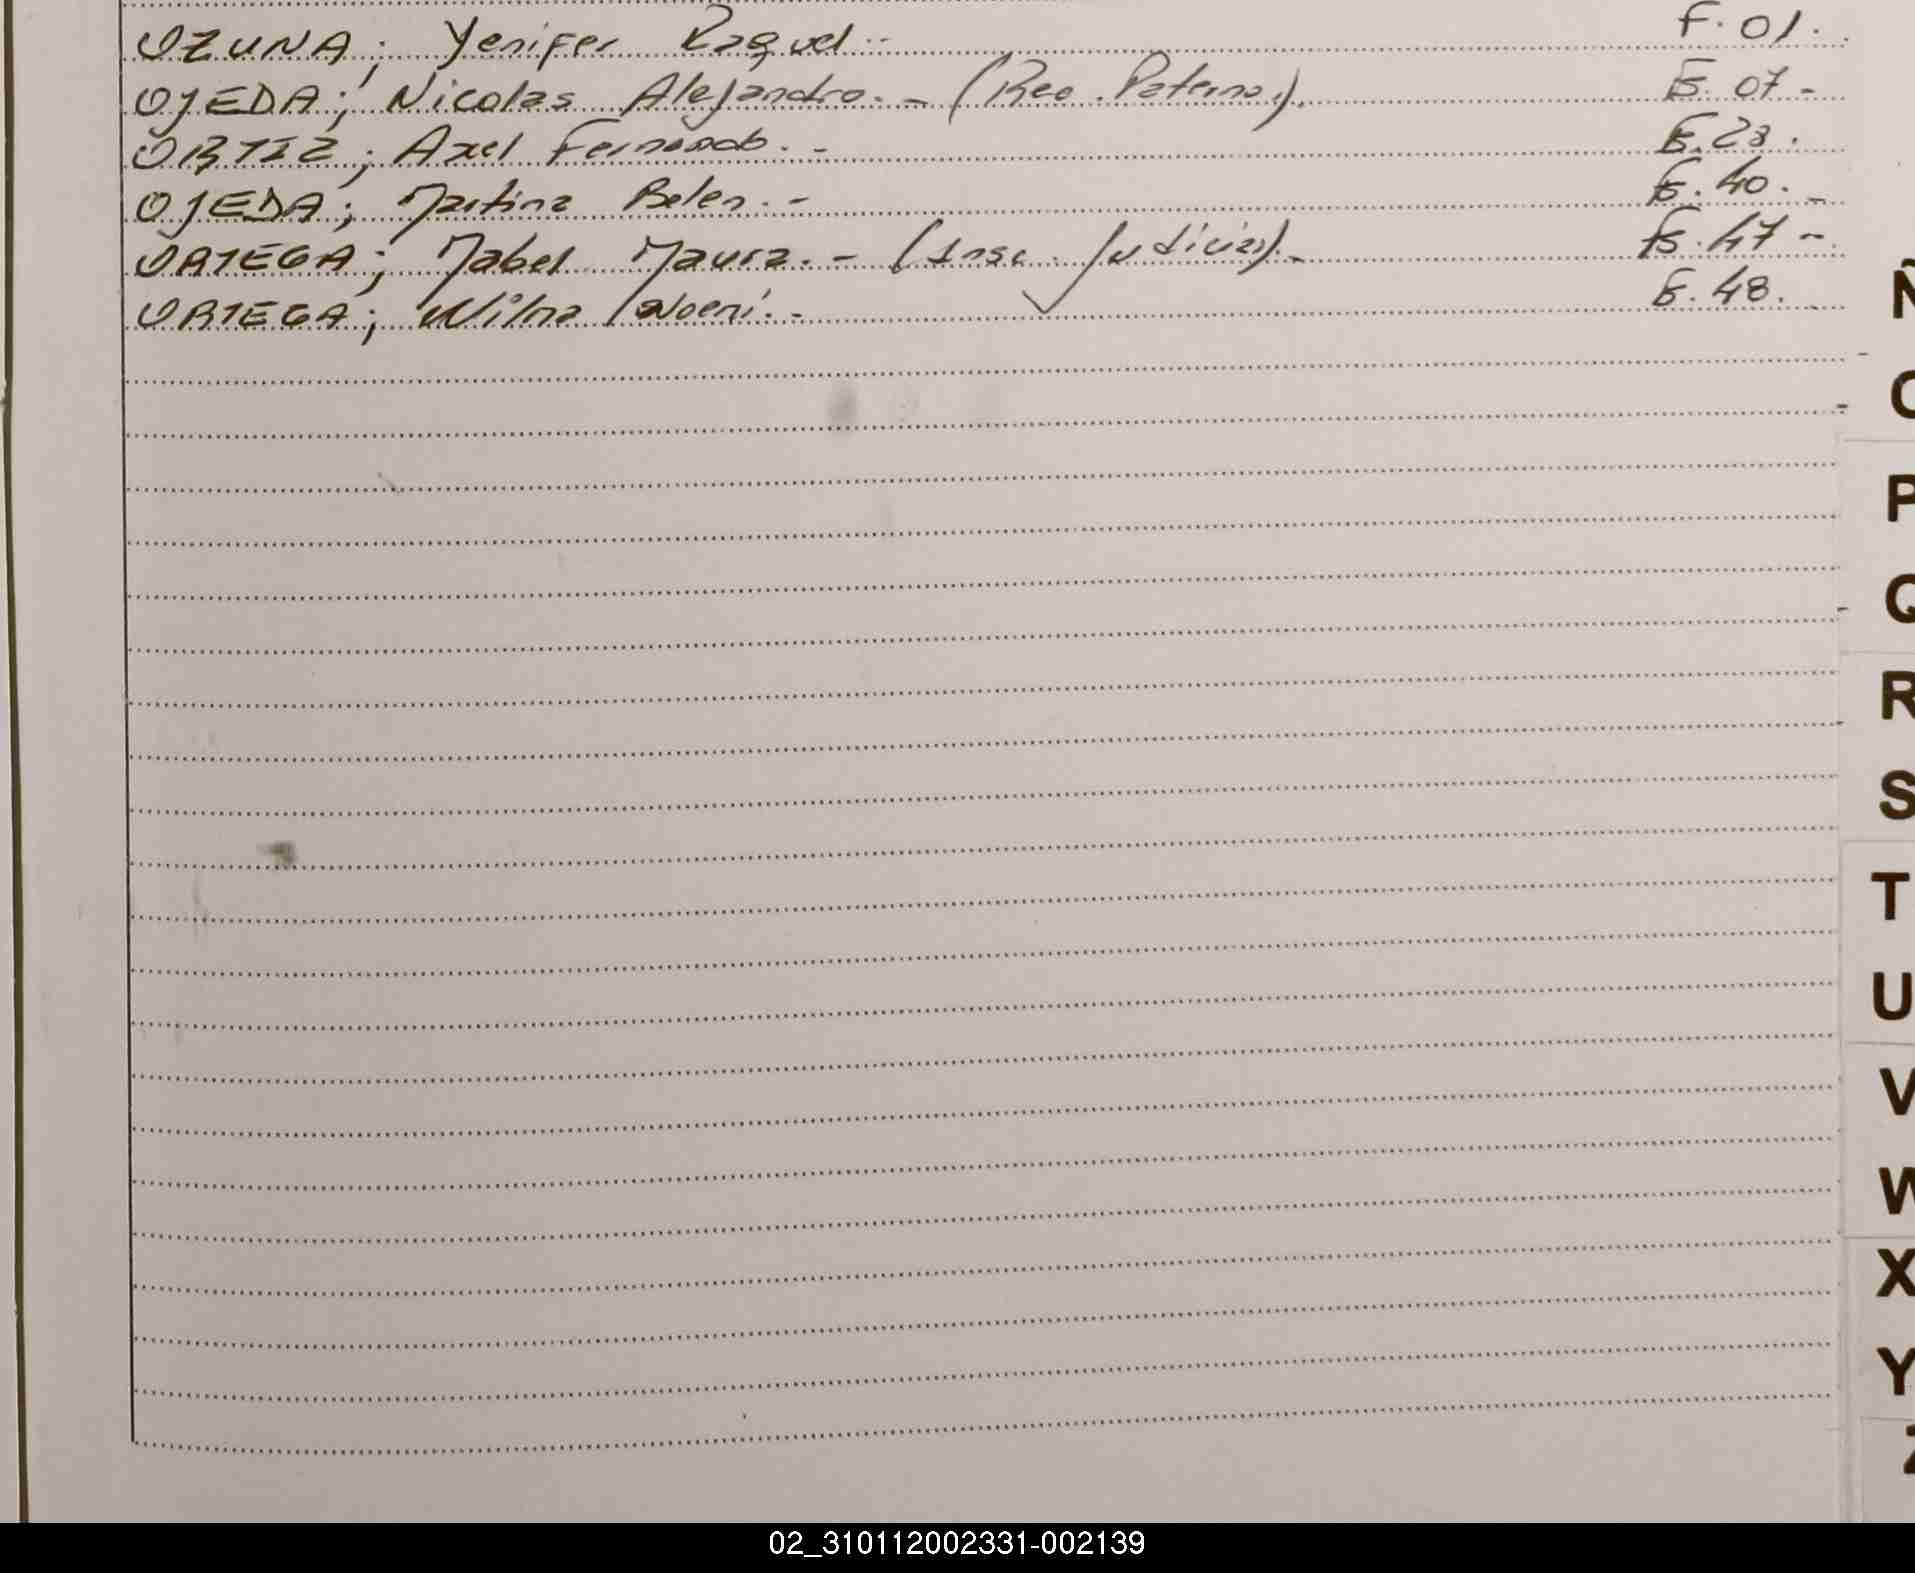 OZUNA; Yenifer Raquel.- F. 01.
OJEDA; Nicolas Alejandro.- (Rec. Paterno). F. 07-
ORTIZ; Axel Fernando.- F. 23.
OJEDA; Martina Belen.- F. 40.-
ORTEGA; Mabel Maura.- (Insc. Judicial).- Fs. 47-
ORTEGA; Wilma Noemi.- F. 48.
Ñ
O
P
Q
R
S
T
U
V
W
X
Y
Z
02_310112002331-002139